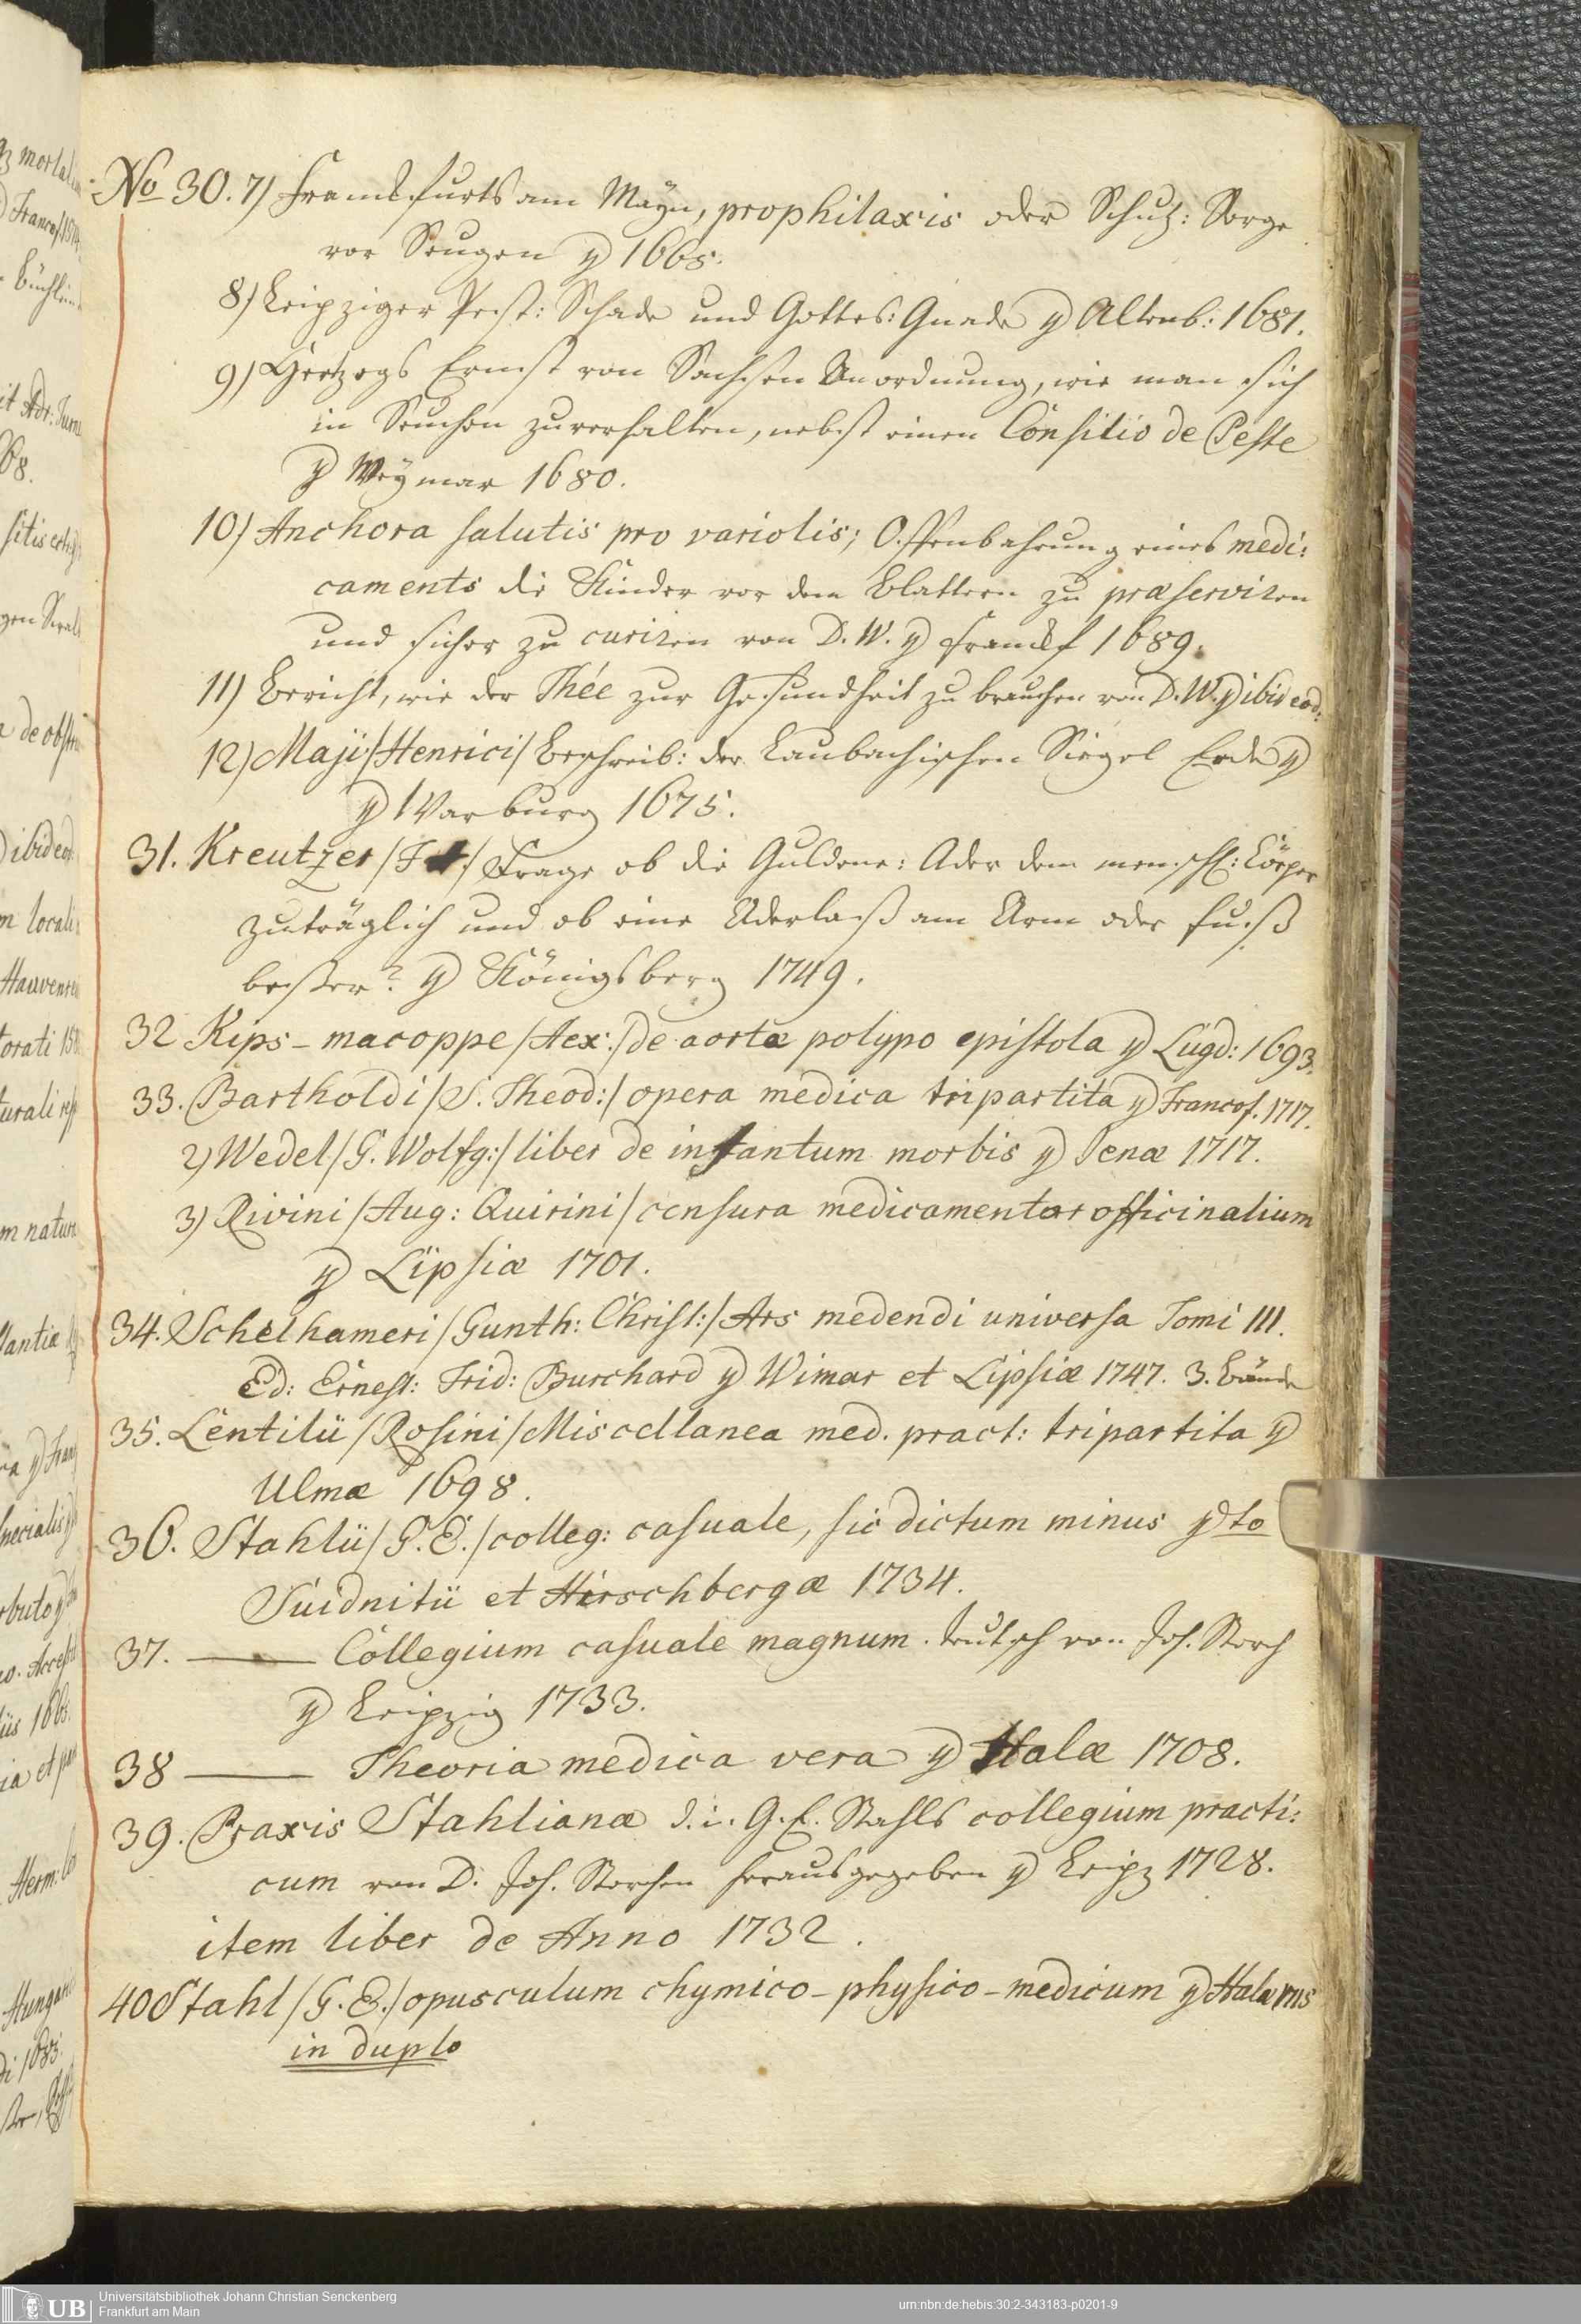 No 30. 7) Franckfurts am Mayn, prophilaxis oder Schutz: Sorge
vor Seugen 1665.
8) Leipziger Pest: Schade und Gottes: Gnade Altenb: 1681.
9) Hertzogs Ernst von Sachsen Anordnung, wie man sich
in Seuchen zuverhalten, nebst einen Consilio de Peste
Weymar 1680.
10) Anchora salutis pro variolis; Offenbahrung eines medi:
caments die Kinder vor dem Blattern zu præserviren
und sicher zu curiren von D. W. Franckf 1689.
11) Bericht, wie der Thée zur Gesundheit zu brauchen von D. W. ibid eod:
12) Maji /Henrici/ Beschreib: der Laubachischen Siegel Erde
Marburg 1675.
31. Kreutzer / Frage ob die Guldene: Ader dem menschl: Cörper
zuträglich und ob eine Aderlaß am Arm oder fuß
beßer? Königsberg 1749.
32 Kips-macoppe /Aex:/ de aortæ polypo epistola Lugd: 1693.
33. Bartholdi /S. Theod:/ opera medica tripartita Francof. 1717.
2) Wedel /G. Wolfg:/ liber de infantum morbis Jenæ 1717.
3) Rivini /Aug: Quirini/ censura medicamentor officinalium
Lipsiæ 1701.
34. Schelhameri /Gunth: Christ:/ Ars medendi universa Tomi III.
Ed: Ernest: Frid: Burchard Wimar et Lipsiæ 1747. 3. Bände
35. Lentilii /Rosini/ Miscellanea med. pract: tripartita
Ulmæ 1698.
36. Stahlii /G. E./ colleg: casuale, sic dictum minus
Suidnitii et Hirschbergæ 1734.
37. ——— Collegium casuale magnum. teutsch von Joh. Storch
Leipzig 1733.
38 ——— Theoria medica vera Halæ 1708.
39. Praxis Stahliana d. i. G. E. Stahls collegium practi:
cum von D. Joh. Storchen herausgegeben Leipz 1728.
item liber de Anno 1732.
40 Stahl /G. E./ opusculum chymico-physico-medicum Halæ 1715
in duplo
UB Universitätsbibliothek Johann Christian Senckenberg
Frankfurt am Main
urn:nbn:de:hebis:30:2-343183-p0201-9